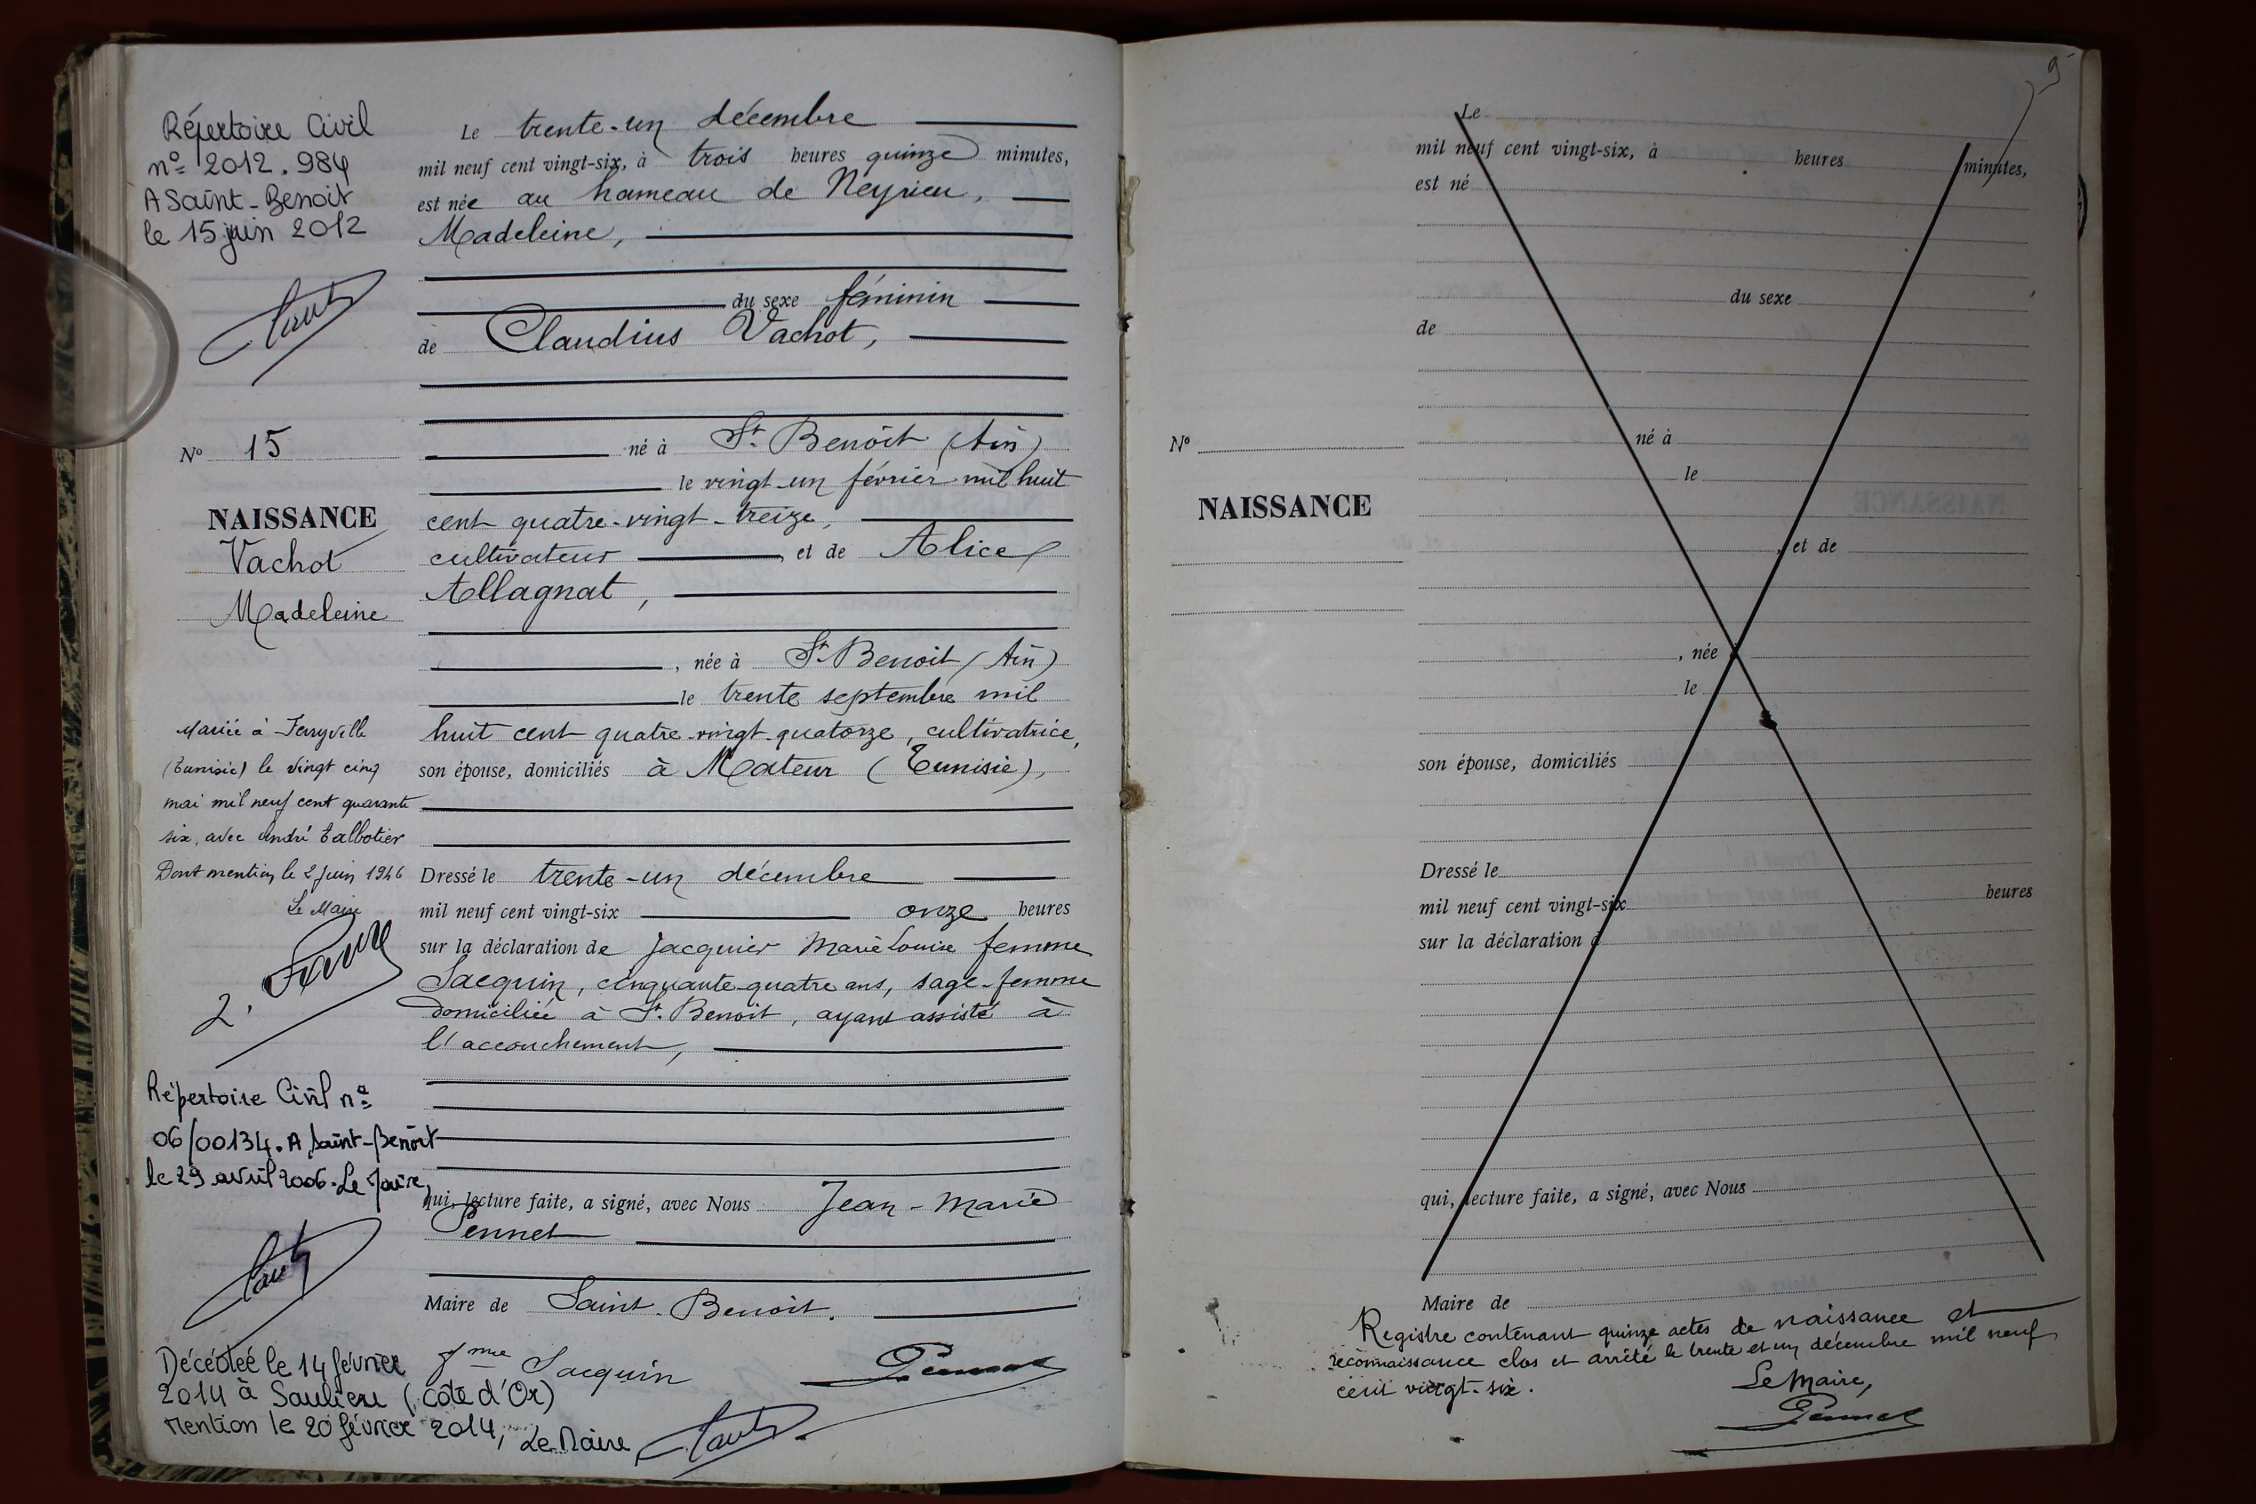 Répertoire Civil
nº 2012.984
A Saint-Benoit
le 15 juin 2012
Nº 15
NAISSANCE
Vachot
Madeleine
Mariée à Ferryville
(Tunisie) le vingt cinq
mai mil neuf cent quarante
six, avec André Talbotier
Dont mention le 2 Juin 1946
Le Maire
2.
Répertoire Civil nº
06/00134. A Saint-Benoît
le 29 avril 2006. Le Maire,
Décédée le 14 février
2014 à Saulieu (Côte d'Or)
Mention le 20 février 2014, Le Maire
Le trente-un décembre
mil neuf cent vingt-six, à trois heures quinze minutes,
est née au hameau de Neyrieu,
Madeleine,
du sexe féminin
de Claudius Vachot,
né à St. Benoît (Ain)
le vingt-un février mil huit
cent quatre-vingt-treize,
cultivateur et de Alice
Allagnat,
, née à St. Benoit (Ain)
le trente septembre mil
huit cent quatre-vingt-quatorze, cultivatrice,
son épouse, domiciliés à Mateur (Tunisie),
Dressé le trente-un décembre
mil neuf cent vingt-six onze heures
sur la déclaration de Jacquier Marie Louise femme
Jacquin, cinquante-quatre ans, sage-femme
domiciliée à St. Benoit, ayant assisté à
l'accouchement,
qui, lecture faite, a signé, avec Nous Jean-Marie
Pennet
Maire de Saint-Benoit.
fme Jacquin
Pennet
9
Le
mil neuf cent vingt-six, à heures minutes,
est né
du sexe
de
né à
le
Nº
NAISSANCE
, et de
, née à
le
son épouse, domiciliés
Dressé le
mil neuf cent vingt-six heures
sur la déclaration d
qui, lecture faite, a signé, avec Nous
Maire de
Registre contenant quinze actes de naissance et
reconnaissance clos et arrêté le trente et un décembre mil neuf
cent vingt-six.
Le Maire,
Pennet